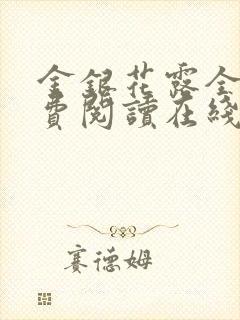 金銀花露全
費閱讀在綫
賽德姆